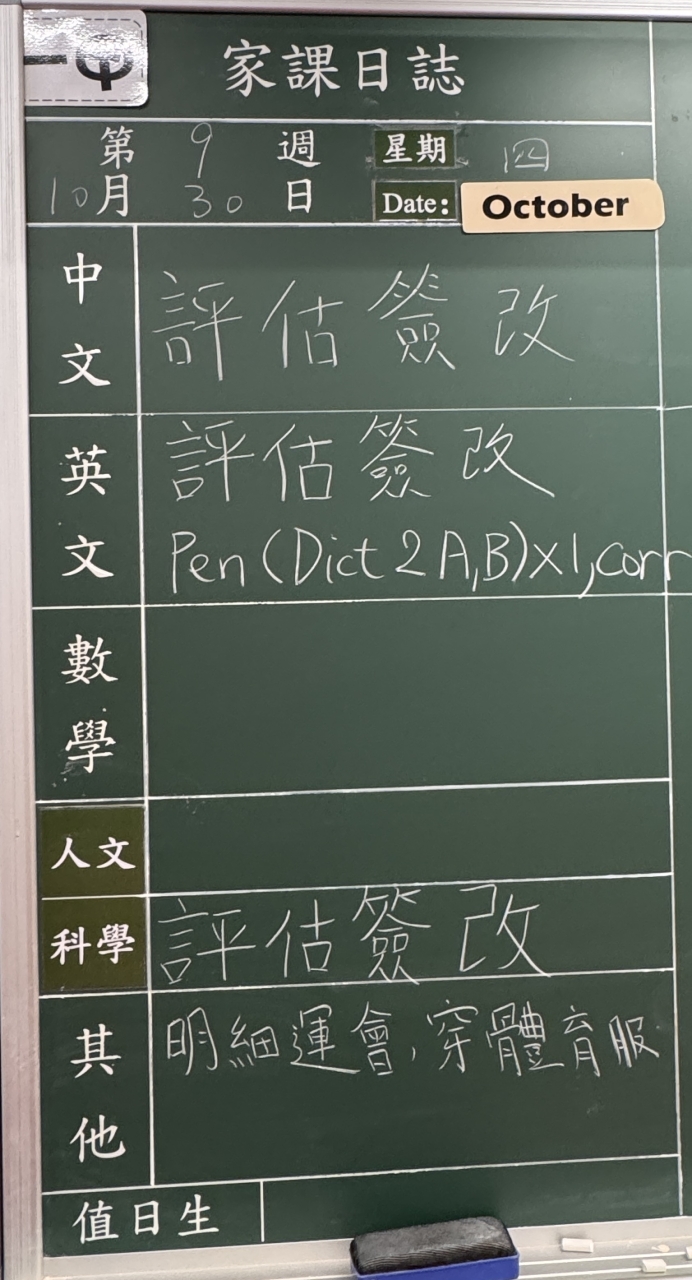 一甲
家課日誌
第 9 週 星期 四
10月 30 日 Date: October
中文 評估簽改
英文 評估簽改
Pen (Dict 2 A,B)x1, corr
數學
人文
科學 評估簽改
其他 明細運會，穿體育服
值日生